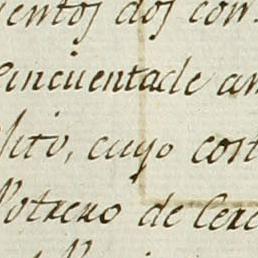 ientos dos con
Cincuentade an
sito, cuyo cost
Potrero de Cere